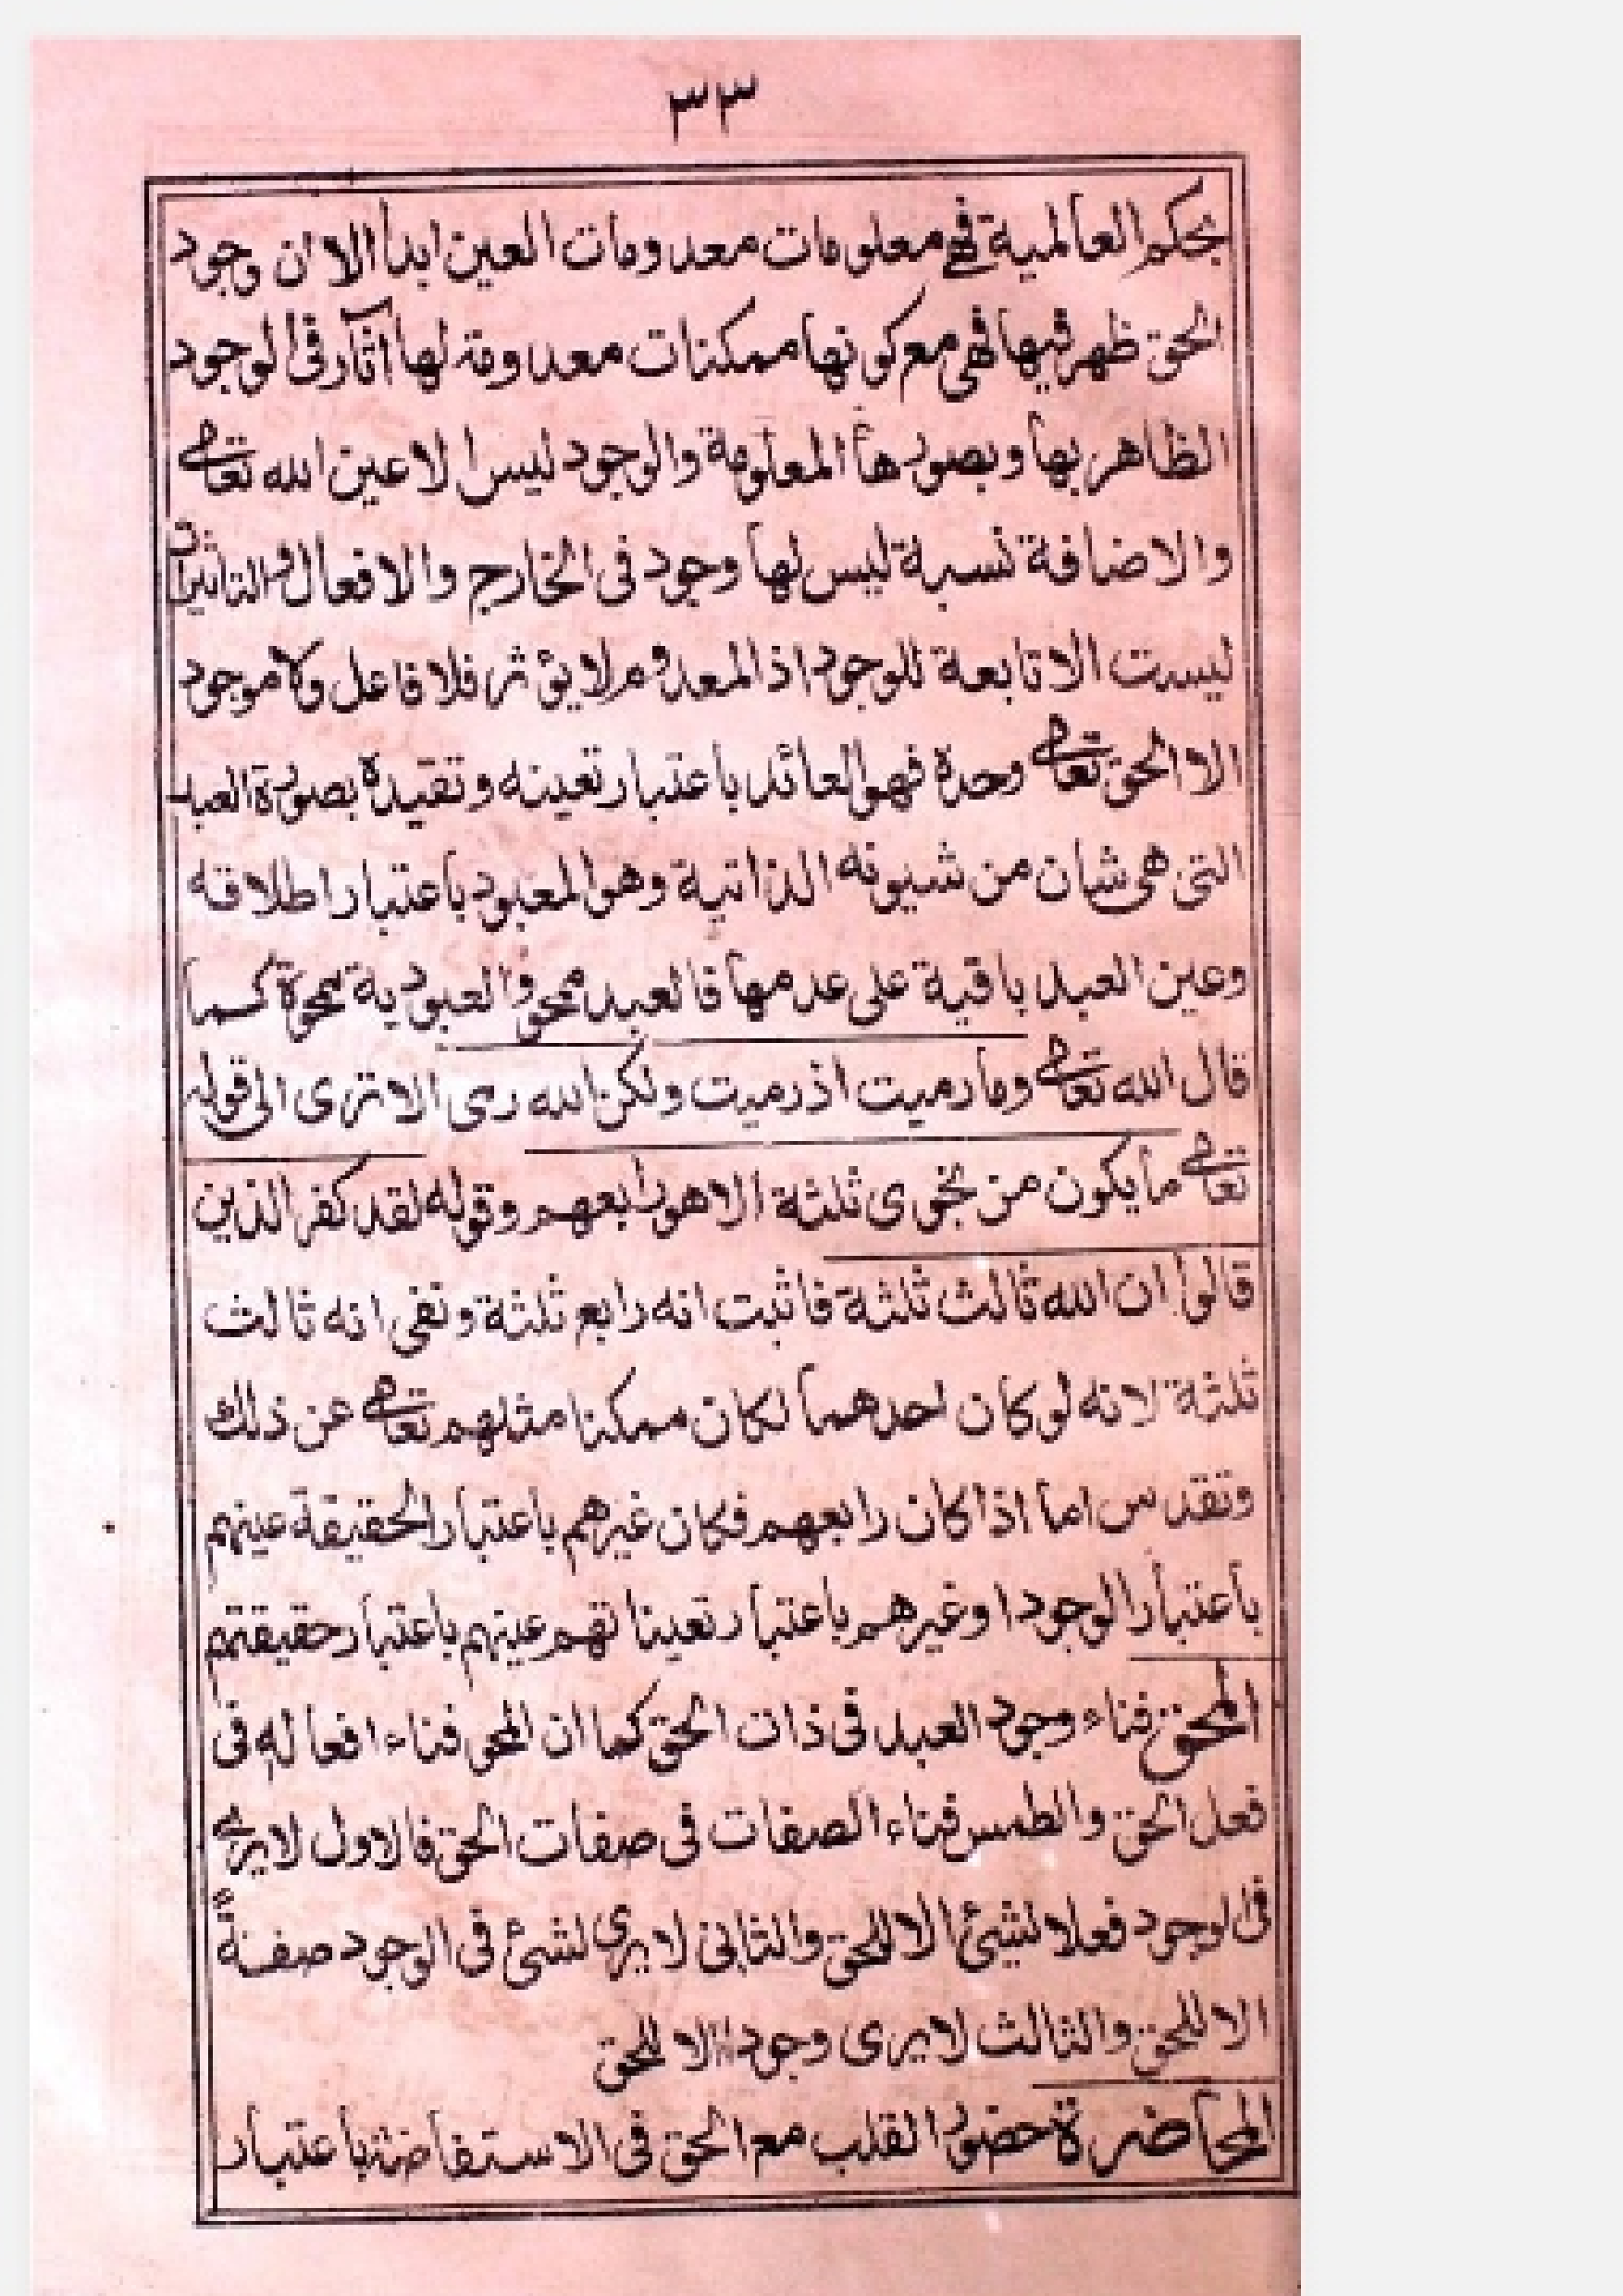 ٣٣
بحكم العالمية فهى معلومات معدومات العين ابدا الا ان وجود
الحق ظهر فيها فهى مع كونها ممكنات معدومة لها آثار فى الوجود
الظاهر بها وبصورها المعلومة والوجود ليس الا عين الله تعالى
والاضافة نسبة ليس لها وجود فى الخارج والافعال والتاثيرات
ليست الا تابعة للوجود اذ المعدوم لا يؤثر فلا فاعل ولا موجود
الا الحق تعالى وحده فهو العائد باعتبار تعينه وتقيده بصورة العبد
التى هى شان من شيونه الذاتية وهو المعبود باعتبار اطلاقه
وعين العبد باقية على عدمها فالعبد ممحو والعبودية ممحوة كما
قال الله تعالى وما رميت اذ رميت ولكن الله رمى الا ترى الى قوله
تعالى ما يكون من نجوى ثلثة الا هو رابعهم وقوله لقد كفر الذين
قالوا ان الله ثالث ثلثة فاثبت انه رابع ثلثة ونفى انه ثالث
ثلثة لانه لو كان احدهما لكان ممكنا مثلهم تعالى عن ذلك
وتقدس اما اذا كان رابعهم فكان غيرهم باعتبار الحقيقة عينهم
باعتبار الوجود او غيرهم باعتبار تعيناتهم عينهم باعتبار حقيقتهم
المحق فناء وجود العبد فى ذات الحق كما ان المحو فناء افعاله فى
فعل الحق والطمس فناء الصفات فى صفات الحق فالاول لا يرى
فى الوجود فعلا لشئ الا للحق والثانى لا يرى لشئ فى الوجود صفة
الا للحق والثالث لا يرى وجودا الا للحق
المحاضرة حضور القلب مع الحق فى الاستفاضة باعتبار